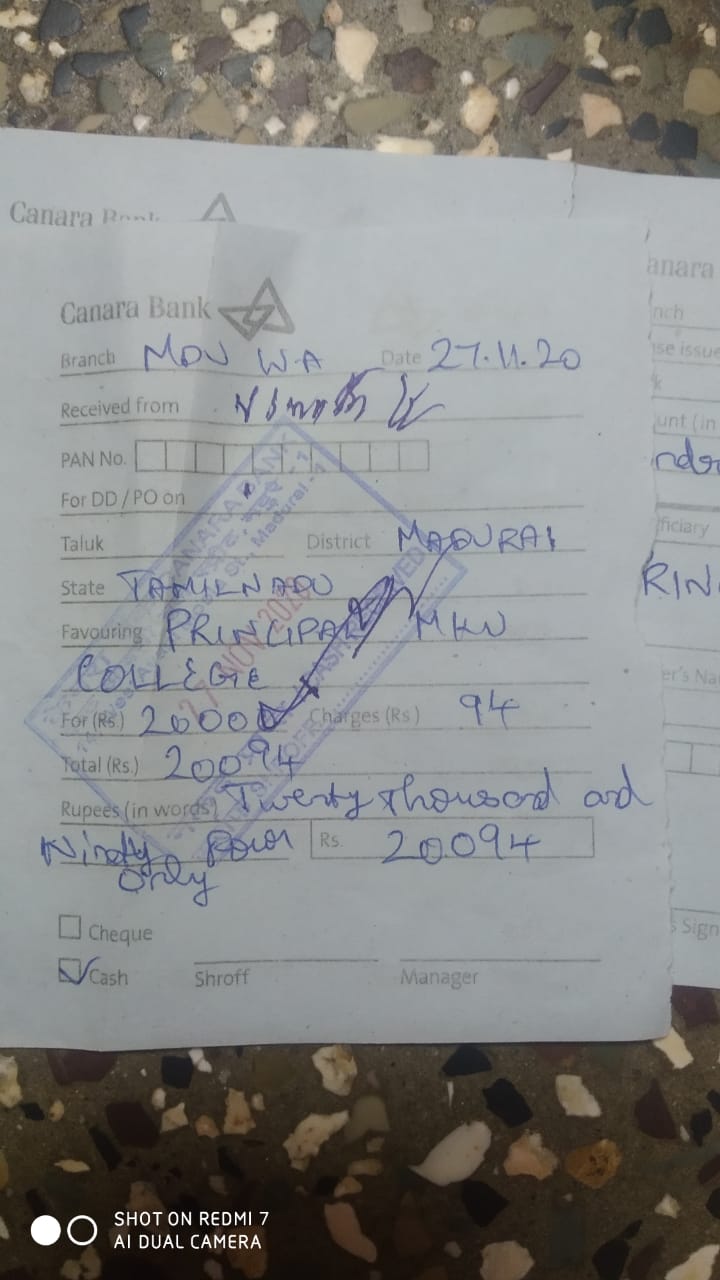 Canara Bank
anara
Canara Bank
Branch MDU WA Date 27.11.20
Received from
PAN No.
For DD / PO on
Taluk District MADURAI
State TAMILNADU
Favouring PRINCIPAL MKU
COLLEGE
For (Rs) 20000 Charges (Rs) 94
Total (Rs.) 20094
Rupees (in words) Twenty thousand and
Ninety four Rs. 20094
only
Cheque
Cash Shroff Manager
CANARA BANK
Madurai - 1
27 NOV 2020
CASH RECEIVED
nch
se issue
unt (in
ficiary
RIN
er's Na
Sign
SHOT ON REDMI 7
AI DUAL CAMERA